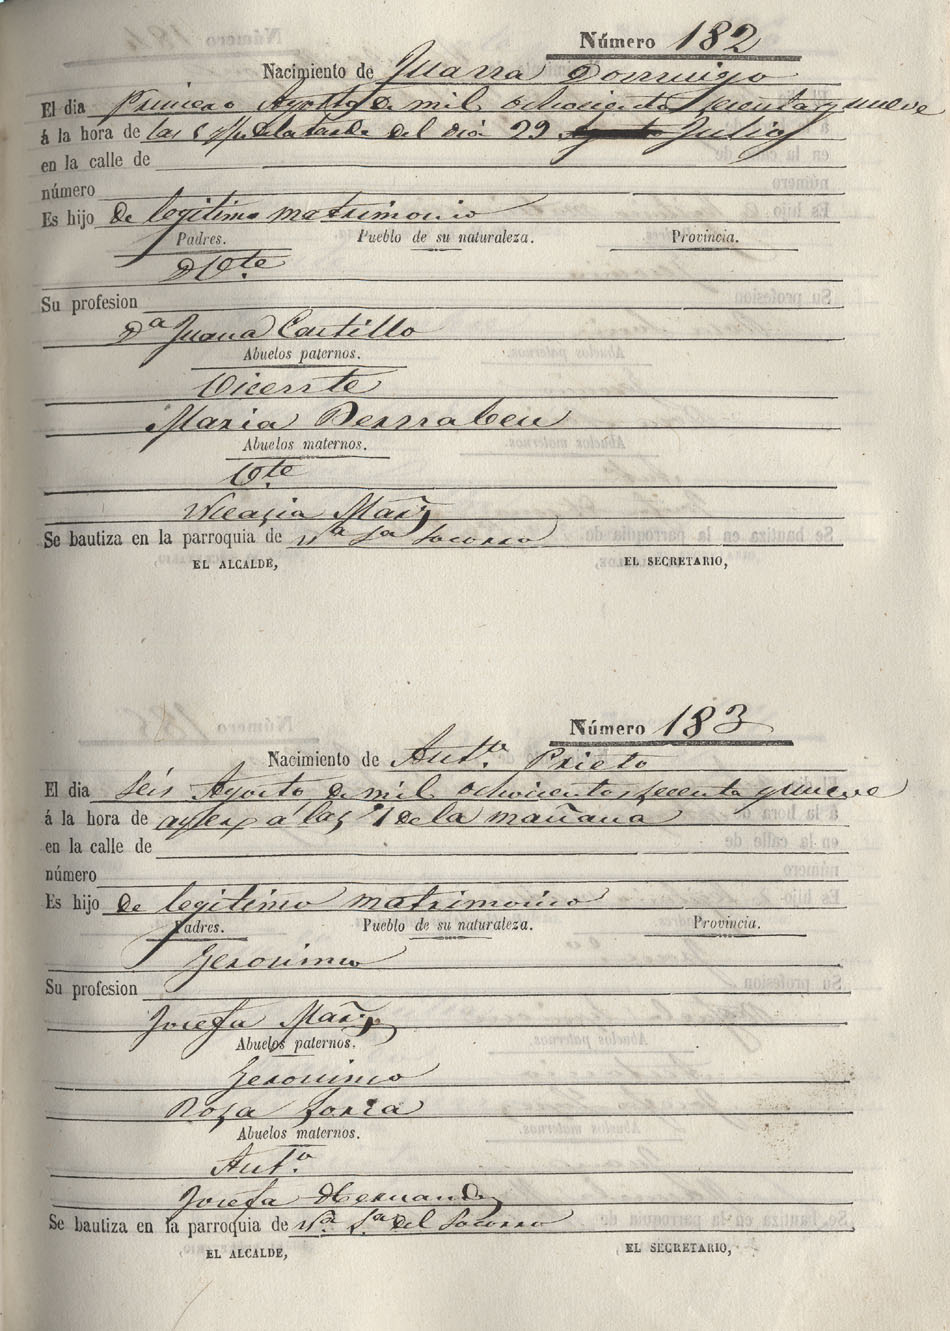 Número 182
Nacimiento de Juana Domingo
El dia Primero Agosto de mil ochocientos sesenta y nueve
á la hora de las 5 de la tarde del dia 29 Julio
en la calle de
número
Es hijo de legitimo matrimonio
Padres. Pueblo de su naturaleza. Provincia.
D Vte
Su profesion
Da Juana Castillo
Abuelos paternos.
Vicente
Maria Bernabeu
Abuelos maternos.
Vte
Nicasia Marz
Se bautiza en la parroquia de Na Sa Socorro
EL ALCALDE, EL SECRETARIO,
Número 183
Nacimiento de Anto. Prieto
El dia Seis Agosto de mil ochocientos sesenta y nueve
á la hora de ayer á las de la mañana
en la calle de
número
Es hijo de legitimo matrimonio
Padres. Pueblo de su naturaleza. Provincia.
Geronimo
Su profesion
Josefa Marz
Abuelos paternos.
Geronimo
Rosa Soria
Abuelos maternos.
Anto.
Josefa Hernandz
Se bautiza en la parroquia de Na. Sa. del Socorro
EL ALCALDE, EL SECRETARIO,